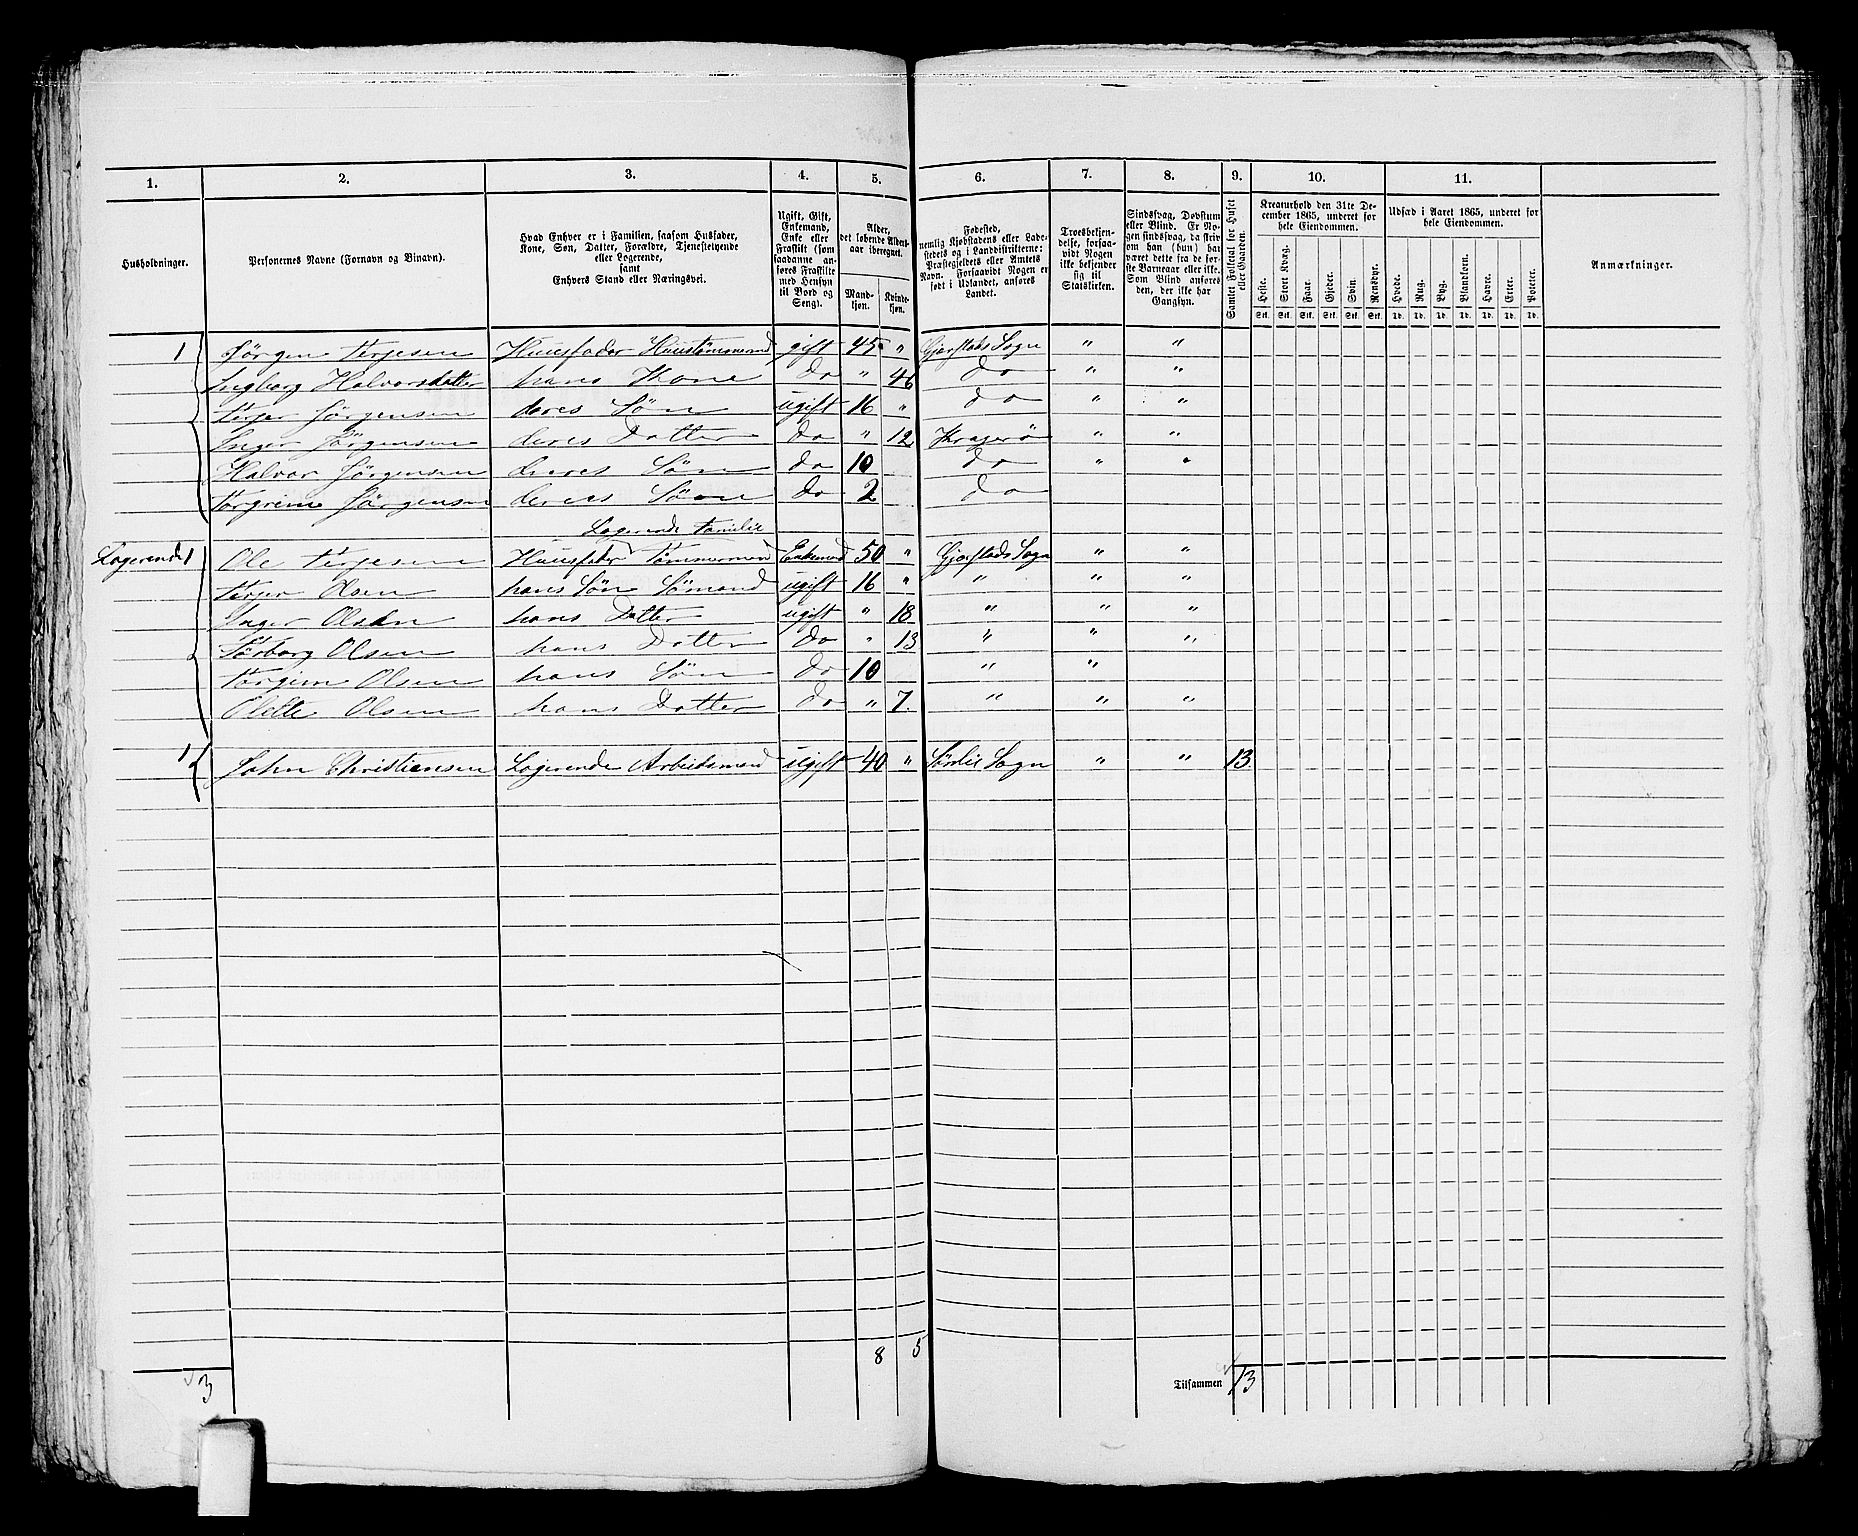 1. 2. 3. 4. 5. 6. 7. 8. 9. 10. 11.
Husholdninger.
Personernes Navne (Fornavn og Binavn).
Hvad Enhver er i Familien, saasom Husfader,
Kone, Søn, Datter, Forældre, Tjenestetyende
eller Logerende,
samt
Enhvers Stand eller Næringsvei.
Ugift, Gift,
Enkemand,
Enke eller
Fraskilt (som
saadanne an-
føres Fraskilte
med Hensyn
til Bord og
Seng).
Alder,
det løbende Alders-
aar iberegnet.
Mand-
kjøn.
Kvinde-
kjøn.
Fødested,
nemlig Kjøbstadens eller Lade-
stedets og i Landdistrikterne:
Præstegjeldets eller Amtets
Navn. Forsaavidt Nogen er
født i Udlandet, anføres
Landet.
Troesbekjen-
delse, forsaa-
vidt Nogen
ikke bekjender
sig til
Statskirken.
Sindssvag, Døvstum
eller Blind. Er No-
gen sindssvag, da skriv
om han (hun) har
været dette fra de før-
ste Barneaar eller ikke.
Som Blind anføres
den, der ikke har
Gangsyn.
Samlet Folketal for Huset
eller Gaarden.
Kreaturhold den 31te De-
cember 1865, underet for
hele Eiendommen.
Heste. Stort Kvæg. Faar. Gjeder. Svin. Rensdyr.
Stk. Stk. Stk. Stk. Stk. Stk.
Udsæd i Aaret 1865, underet for
hele Eiendommen.
Hvede. Rug. Byg. Blandkorn. Havre. Erter. Poteter.
Td. Td. Td. Td. Td. Td. Td.
Anmærkninger.
1 Jörgen Terjesen Huusfader Huustömmermd gift 45 " Gjerstads Sogn " "
Ingborg Halvorsdatter hans Kone do " 46 do " "
Terjer Jörgensen deres Sön ugift 16 " do " "
Inger Jörgensen deres Datter do " 12 Kragerö " "
Halvor Jörgensen deres Sön do 10 do " "
Torgrim Jörgensen deres Sönn do 2 do
Logerende Familie
Logerende 1 Ole Terjesen Huusfader Tömmermend Enkemd 50 " Gjerstads Sogn " "
Terjer Olsen hans Sön Sömand ugift 16 " " " "
Inger Olsen hans Datter ugift " 18 " " "
Olsen hans Datter do " 13 " " "
Torgim Olsen hans Sön do 10 " "
Olette Olsen hans Datter do " 7 " " "
1 John Christiansen Logerende Arbeidsmend ugift 40 " Sogn " " 13
8 5
3 Tilsammen 13